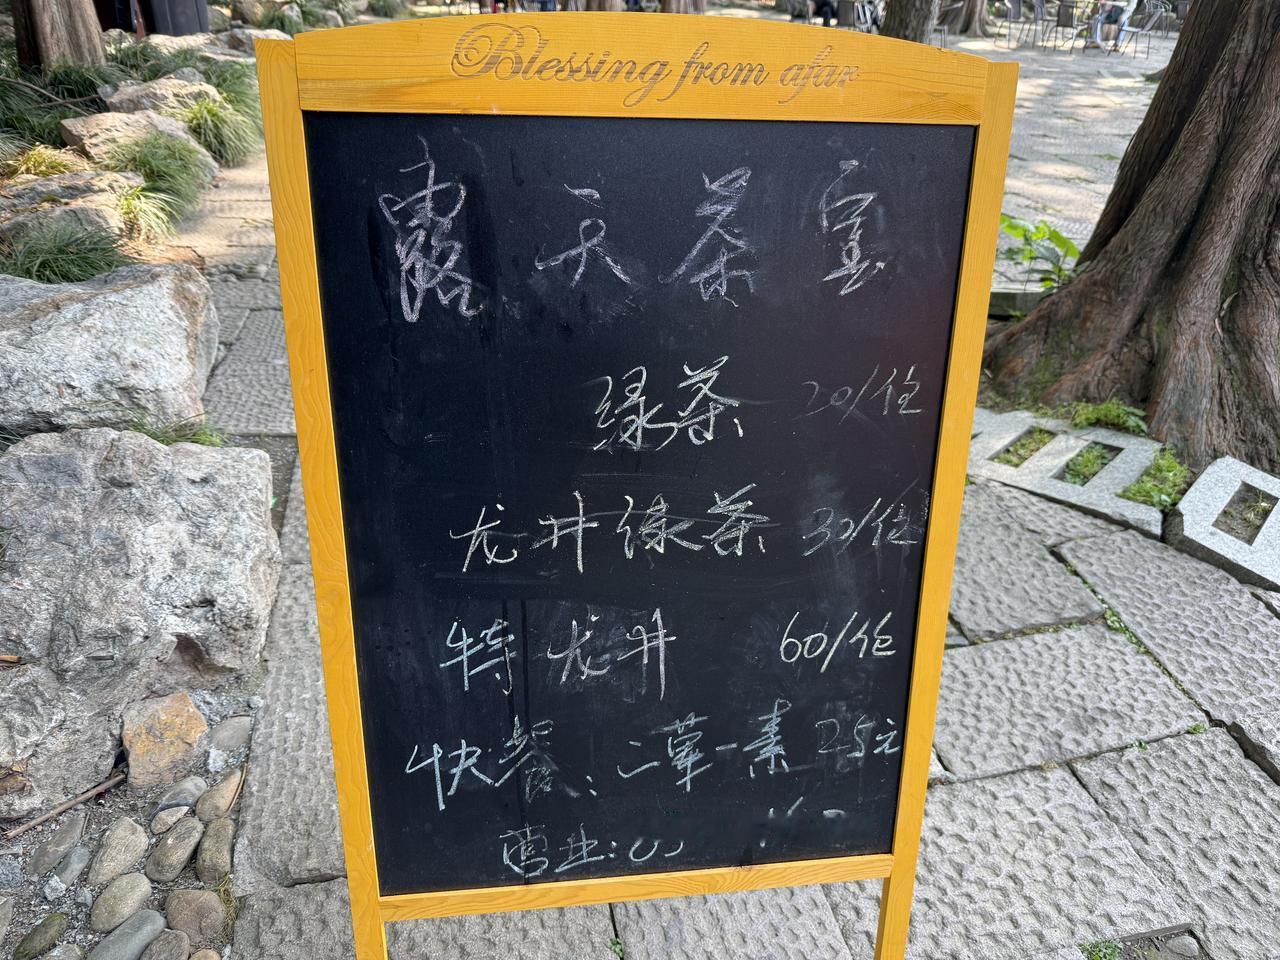 Blessing from afar
露天茶室
绿茶 20/位
龙井绿茶 30/位
特龙井 60/位
快餐:二荤一素 25元
营业: